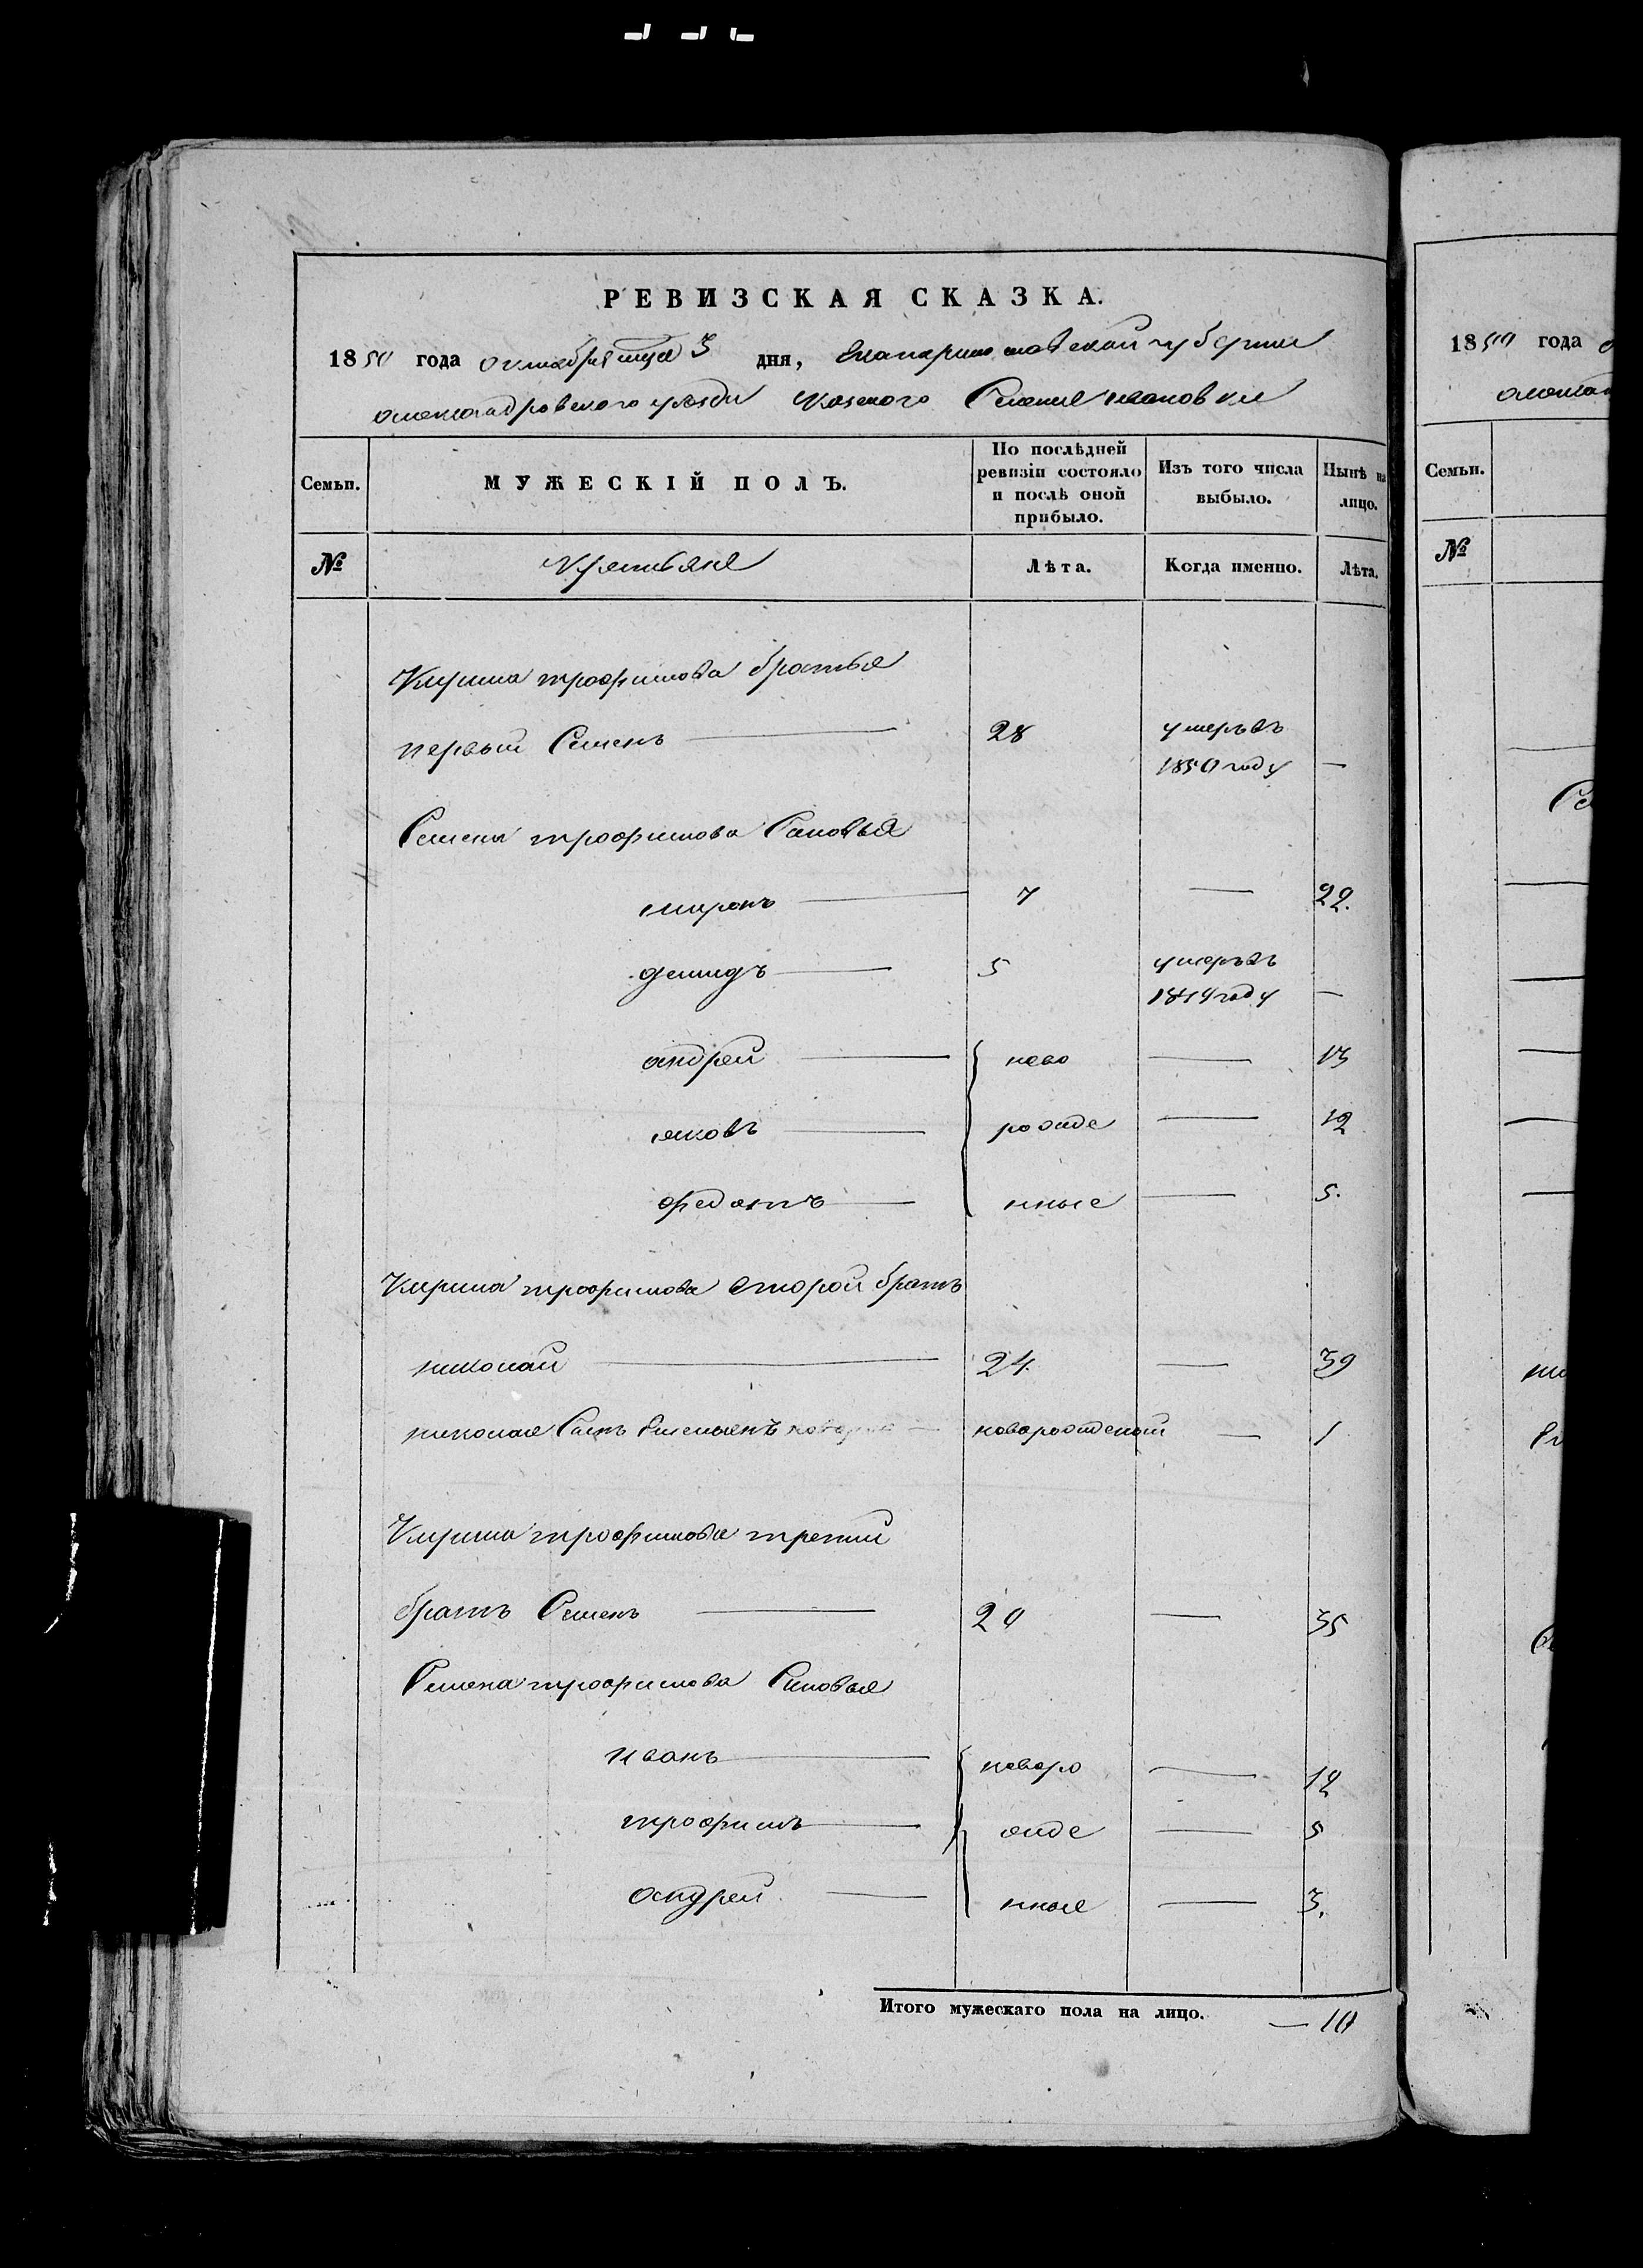 РЕВИЗСКАЯ СКАЗКА.
1850 года октября мця 3 дня, Екатеринославской губернии
александровского уезди казеного Селения ивановки
Семьи. МУЖЕСКІЙ ПОЛЪ. По послѣдней ревизіи состояло и послѣ оной прибыло. Изъ того числа выбыло. Нынѣ на лицо.
№ Крестьяне Лѣта. Когда именно. Лѣта.
трофимова братья
первый Семенъ 28 умеръ въ
1850 году —
Семена трофимова Сыновья
миронъ 7 — 22.
демидъ 5 умеръ въ
году —
андрей ново — 13
яковъ рожде — 12
федотъ нные — 5.
трофимова второй братъ
николай 24. — 39
николая Сынъ новорожденой — 1
трофимова третий
братъ Семенъ 20 — 35
Семена трофимова Сыновья
иванъ новоро — 12
трофимъ жде — 5
андрей нные — 3.
Итого мужескаго пола на лицо. — 10
1850 года
Семьи.
№